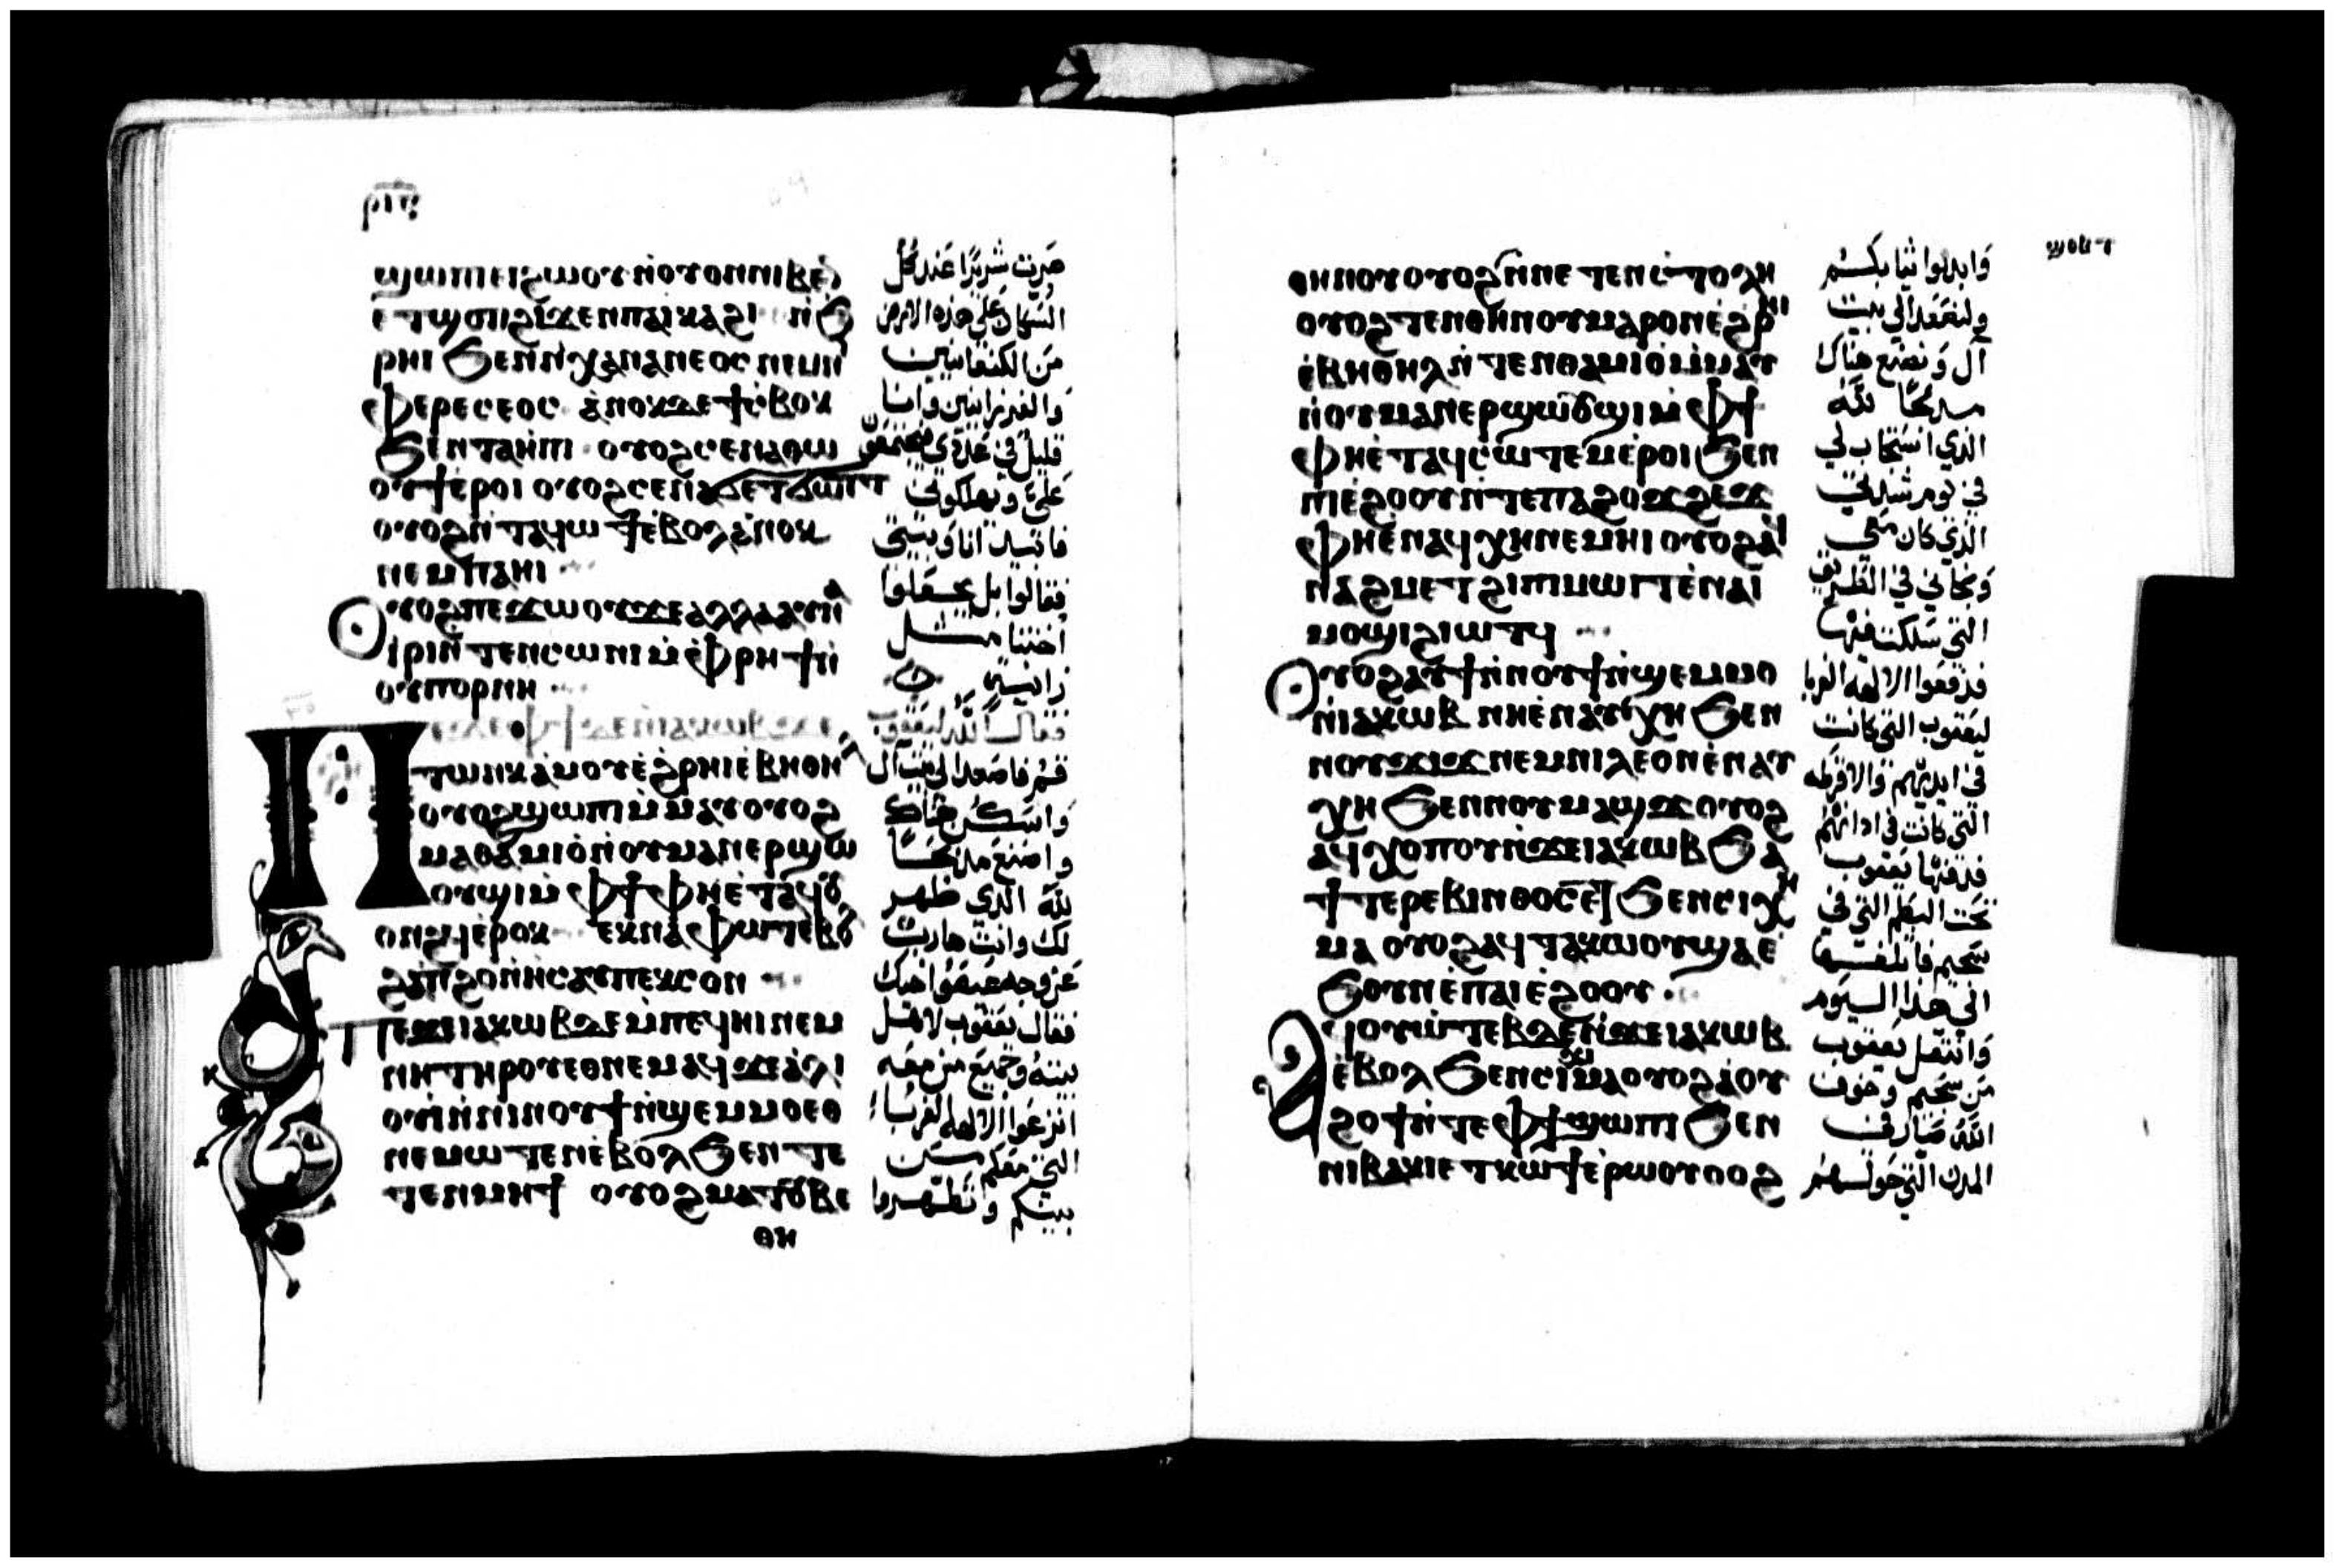 ⲣⲓⲋ
ϣⲱⲡⲓ ⲉⲓϩⲱⲟⲩ ⲛ̀ⲟⲩⲟⲛ ⲛⲓⲃⲉⲛ
ⲉⲧϣⲟⲡ ϩⲓϫⲉⲛ ⲡⲁⲓⲕⲁϩⲓ ⲛ̀ϧ
ⲣⲏⲓ ϧⲉⲛ ⲛⲓⲭⲁⲛⲁⲛⲉⲟⲥ ⲛⲉⲙ ⲛⲓ
ⲫⲉⲣⲉⲥⲉⲟⲥ ⲁ̀ⲛⲟⲕ ⲇⲉ ϯⲥⲟⲃⲕ
ϧⲉⲛ ⲧⲁⲏ̀ⲡⲓ ⲟⲩⲟϩ ⲥⲉⲛⲁⲑⲱ
ⲟⲩϯ ⲉ̀ⲣⲟⲓ ⲟⲩⲟϩ ⲥⲉⲛⲁϧⲉⲧϧⲱⲧ
ⲟⲩⲟϩ ⲛ̀ⲧⲁϥⲱϯ ⲉ̀ⲃⲟⲗ ⲁ̀ⲛⲟⲕ
ⲛⲉⲙ ⲡⲁⲏⲓ
ⲟⲩⲟϩ ⲡⲉϫⲱⲟⲩ ϫⲉ ⲁⲗⲗⲁ ⲁⲩⲛⲁ
ⲓⲣⲓ ⲛ̀ⲧⲉⲛⲥⲱⲛⲓ ⲙ̀ⲫⲣⲏϯ ⲛ̀
ⲟⲩⲡⲟⲣⲛⲏ
ⲡⲉϫⲉ ⲫϯ ⲇⲉ ⲛ̀ⲓⲁⲕⲱⲃ ϫⲉ
ⲧⲱⲛⲕ ⲁ̀ⲙⲟⲩ ⲉ̀ϩⲣⲏⲓ ⲉ̀ⲃⲏⲑⲏⲗ
ⲟⲩⲟϩ ϣⲱⲡⲓ ⲙ̀ⲙⲁⲩ ⲟⲩⲟϩ
ⲙⲁⲑⲁⲙⲓⲟ̀ ⲛ̀ⲟⲩⲙⲁⲛⲉⲣϣⲱ
ⲟⲩϣⲓ ⲙ̀ⲫϯ ⲫⲏⲉ̀ⲧⲁϥⲟⲩ
ⲟⲛϩϥ ⲉ̀ⲣⲟⲕ ⲉⲕⲛⲁⲫⲱⲧ ⲉ̀ⲃⲟⲗ
ϩⲁ ⲡϩⲟ ⲛ̀ⲏⲥⲁⲩ ⲡⲉⲕⲥⲟⲛ
ⲡⲉϫⲉ ⲓⲁⲕⲱⲃ ⲇⲉ ⲙ̀ⲡⲉϥⲏⲓ ⲛⲉⲙ
ⲛⲏ ⲧⲏⲣⲟⲩ ⲉⲑⲛⲉⲙⲁϥ ϫⲉ ⲁ̀ⲗⲓ
ⲟⲩⲓ̀ ⲛ̀ⲛⲓⲛⲟⲩϯ ⲛ̀ϣⲉⲙⲙⲟ ⲉⲑ
ⲛⲉⲙⲱⲧⲉⲛ ⲉ̀ⲃⲟⲗ ϧⲉⲛ ⲧⲉ
ⲧⲉⲛⲙⲏϯ ⲟⲩⲟϩ ⲙⲁⲧⲟⲩⲃⲉ
ⲑⲏ
صرت شريرًا عند كل
السكان على هذه الارض
من الكنعانيين
والفرزانيين وانا
قليل في عددي فيجتمعون
علىّ ويهلكوني
فابيد انا وبيتي
فقالوا بل يجعلوا
اختنا مثل
زانيه
فقال الله ليعقوب
قم فاصعد الى بيت آل
واسكن هناك
واصنع مذبحًا
لله الذي ظهر
لك وانت هارب
عن وجه عيصوا اخيك
فقال يعقوب لاهل
بيته وجميع من معه
انزعوا الالهه الغربا
التي معكم من
بينكم وتطهروا
ⲑⲏⲛⲟⲩ ⲟⲩⲟϩ ϣⲓⲃⲉ ⲧⲉⲛⲥⲧⲟⲗⲏ
ⲟⲩⲟϩ ⲧⲉⲛⲑⲏⲛⲟⲩ ⲙⲁⲣⲟⲛ ⲉ̀ϩⲣⲏⲓ
ⲉ̀ⲃⲏⲑⲏⲗ ⲛ̀ⲧⲉⲛⲑⲁⲙⲓⲟ̀ ⲙ̀ⲙⲁⲩ
ⲛ̀ⲟⲩⲙⲁⲛⲉⲣϣⲱⲟⲩϣⲓ ⲙ̀ⲫϯ
ⲫⲏⲉ̀ⲧⲁϥⲥⲱⲧⲉⲙ ⲉ̀ⲣⲟⲓ ϧⲉⲛ
ⲡⲓⲉ̀ϩⲟⲟⲩ ⲛ̀ⲧⲉ ⲡⲁϩⲟϫϩⲉϫ
ⲫⲏⲉ̀ⲛⲁϥⲭⲏ ⲛⲉⲙⲏⲓ ⲟⲩⲟϩ ⲁϥ
ⲛⲁϩⲙⲉⲧ ϩⲓ ⲡⲓⲙⲱⲓⲧ ⲉ̀ⲛⲁⲓ
ⲙⲟϣⲓ ϩⲓⲱⲧϥ
ⲟⲩⲟϩ ⲁⲩϯ ⲛ̀ⲛⲟⲩϯ ⲛ̀ϣⲉⲙⲙⲟ
ⲛ̀ⲓⲁⲕⲱⲃ ⲛⲏⲉ̀ⲛⲁⲩⲭⲏ ϧⲉⲛ
ⲛⲟⲩϫⲓϫ ⲛⲉⲙ ⲛⲓⲗⲉⲟⲛ ⲉ̀ⲛⲁⲩ
ⲭⲏ ϧⲉⲛ ⲛⲟⲩⲙⲁϣϫ ⲟⲩⲟϩ
ⲁϥⲭⲟⲡⲟⲩ ⲛ̀ϫⲉ ⲓⲁⲕⲱⲃ ϧⲁ
ϯⲧⲉⲣⲉⲃⲓⲛⲑⲟⲥ ⲉⲧ ϧⲉⲛ ⲥⲓⲕⲏ
ⲙⲁ ⲟⲩⲟϩ ⲁϥⲧⲁⲕⲱⲟⲩ ϣⲁ ⲉ̀
ϧⲟⲩⲛ ⲉ̀ⲡⲁⲓⲉ̀ϩⲟⲟⲩ
ⲁϥⲟⲩⲱⲧⲉⲃ ⲇⲉ ⲛ̀ϫⲉ ⲓⲁⲕⲱⲃ
ⲉ̀ⲃⲟⲗ ϧⲉⲛ ⲥⲓⲕⲓⲙⲁ ⲟⲩⲟϩ ⲁ̀ⲟⲩ
ϩⲟϯ ⲛ̀ⲧⲉ ⲫϯ ϣⲱⲡⲓ ϧⲉⲛ
ⲛⲓⲃⲁⲕⲓ ⲉⲧⲕⲱϯ ⲉ̀ⲣⲱⲟⲩ ⲟⲩⲟϩ
وابدلوا ثيابكم
ولنصعد الى بيت
آل ونصنع هناك
مذبحًا لله
الذي استجاب لي
في يوم شدتي
الذي كان معي
ونجاني في الطريق
التي سلكت فيها
فدفعوا الالهه الغربا
ليعقوب التي كانت
في ايديهم والاقرطه
التي كانت في اذانهم
فدفنها يعقوب
تحت البطم التي في
سخيم فاتلفها
الى هذا اليوم
وانتقل يعقوب
من سخيم وخوف
الله صار في
المدن التي حولهم